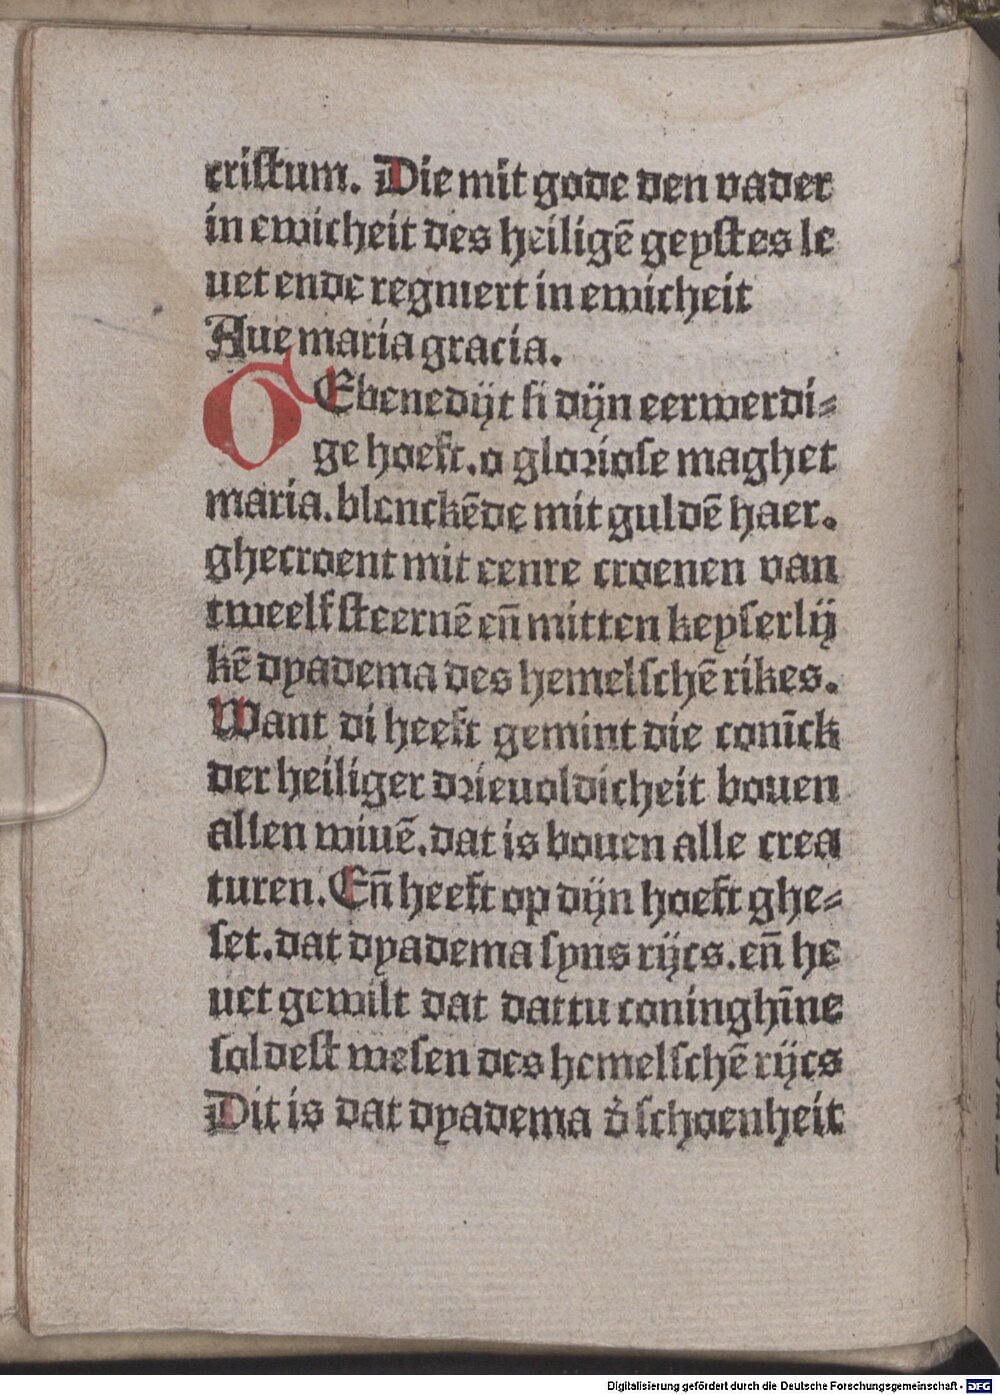 cristum. Die mit gode den vader
in ewicheit des heiligē geystes le
uet ende regniert in ewicheit
Aue maria gracia.
GEbenedijt si dijn eerwerdi-
ge hoeft. o gloriose maghet
maria. blenckēde mit guldē haer.
ghecroent mit eenre croenen van
tweelf steernē eñ mitten keyserlij
kē dyadema des hemelschē rikes.
Want di heeft gemint die conīck
der heiliger drieuoldicheit bouen
allen wiuē. dat is bouen alle crea
turen. Eñ heeft op dijn hoeft ghe-
set. dat dyadema syns rijcs. eñ he
uet gewilt dat dattu coninghīne
soldest wesen des hemelschē rijcs
Dit is dat dyadema d̕ schoenheit
Digitalisierung gefördert durch die Deutsche Forschungsgemeinschaft - DFG